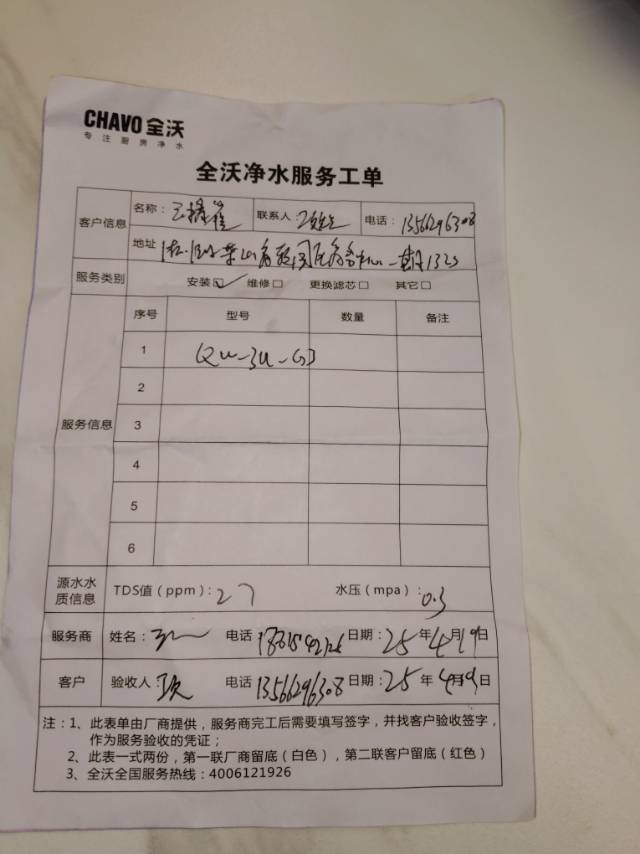 CHAVO 全沃
专注厨房净水
全沃净水服务工单
客户信息 名称： 联系人： 电话：13562296308
地址
服务类别 安装☑ 维修☐ 更换滤芯☐ 其它☐
服务信息 序号 型号 数量 备注
1
2
3
4
5
6
源水水质信息 TDS值（ppm）：27 水压（mpa）：0.3
服务商 姓名： 电话 日期：25年4月19日
客户 验收人： 电话 13562296308 日期：25年4月19日
注：1、此表单由厂商提供，服务商完工后需要填写签字，并找客户验收签字，
作为服务验收的凭证；
2、此表一式两份，第一联厂商留底（白色），第二联客户留底（红色）
3、全沃全国服务热线：4006121926